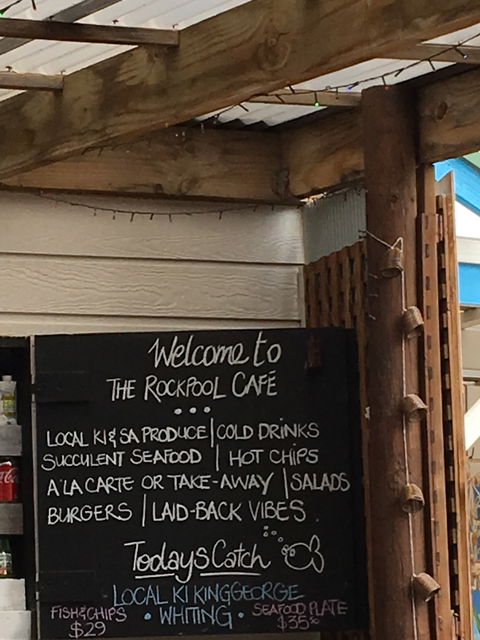 Welcome to
THE ROCKPOOL CAFÉ
LOCAL KI & SA PRODUCE | COLD DRINKS
SUCCULENT SEAFOOD | HOT CHIPS
A'LA CARTE OR TAKE-AWAY | SALADS
BURGERS | LAID-BACK VIBES.
Todays Catch
LOCAL KI KINGGEORGE
• WHITING •
FISH & CHIPS
$29
SEAFOOD PLATE
$35